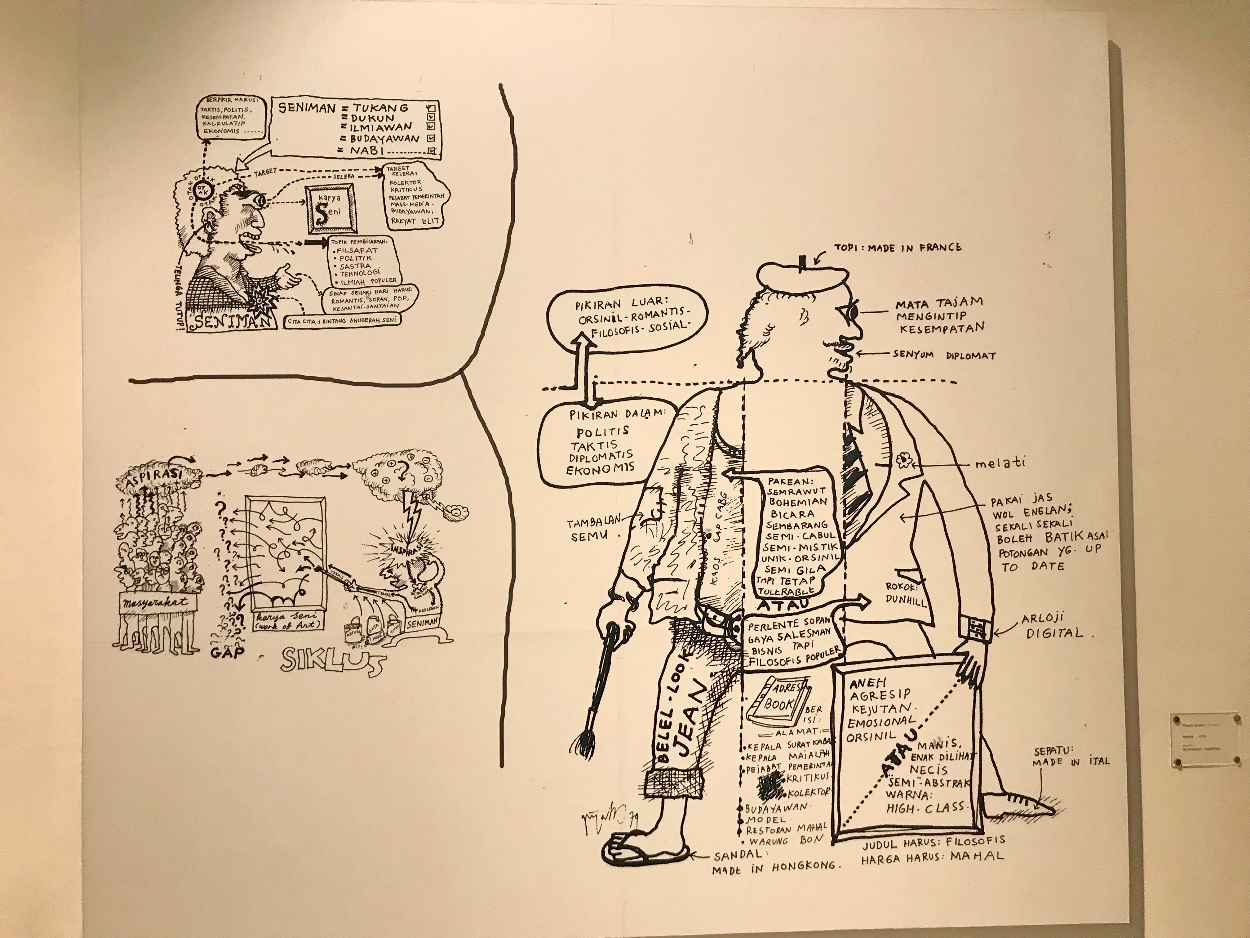 BERPIKIR HARUS:
TAKTIS, POLITIS,
KESEMPATAN,
KALKULATIP
EKONOMIS ......
SENIMAN = TUKANG
= DUKUN
= ILMIAWAN
= BUDAYAWAN
= NABI
TARGET
SELERA
OTAK
karya
Seni
TARGET
SELERA:
KOLEKTOR
KRITIKUS
PEJABAT PEMERINTAH
MASS-MEDIA-
BUDAYAWAN,
RAKYAT ELIT
TOPIK PEMBICARAAN:
• FILSAFAT
• POLITIK
• SASTRA
• TEKNOLOGI
• ILMIAH POPULER
SIKAP SEHARI HARI HARUS:
ROMANTIS, SOPAN, POP,
KESANTAI-SANTAIAN
CITA CITA: BINTANG ANUGERAH SENI
TELINGA TUTUP!
SENIMAN
ASPIRASI
?
INSPIRASI
masyarakat
karya seni
(work of Art)
SENIMAN
GAP
SIKLUS
TOPI: MADE IN FRANCE
PIKIRAN LUAR:
ORSINIL-ROMANTIS-
FILOSOFIS-SOSIAL-
MATA TAJAM
MENGINTIP
KESEMPATAN
SENYUM DIPLOMAT
PIKIRAN DALAM:
POLITIS
TAKTIS
DIPLOMATIS
EKONOMIS
melati
TAMBALAN
SEMU.
KAOS CAP CABG
PAKEAN:
SEMRAWUT
BOHEMIAN
BICARA
SEMBARANG
SEMI-CABUL
SEMI-MISTIK
UNIK-ORSINIL
SEMI GILA
TAPI TETAP
TOLERABLE
ATAU
PERLENTE SOPAN
GAYA SALESMAN
BISNIS TAPI
FILOSOFIS POPULER
PAKAI JAS
WOL ENGLAN;
SEKALI SEKALI
BOLEH BATIK ASAI
POTONGAN YG. UP
TO DATE
ROKOK:
DUNHILL
ARLOJI
DIGITAL.
BELEL-LOOK
JEAN
ADRES
BOOK
BER
ISI:
ALAMAT:
• KEPALA SURAT KABAR
• KEPALA MAJALAH
• PEJABAT PEMERINTA
KRITIKUS
KOLEKTOR
BUDAYAWAN
MODEL
RESTORAN MAHAL
• WARUNG BON
ANEH
AGRESIP
KEJUTAN.
EMOSIONAL
ORSINIL
ATAU
MANIS,
ENAK DILIHAT
NECIS
SEMI-ABSTRAK
WARNA:
HIGH-CLASS.
SEPATU:
MADE IN ITAL
JUDUL HARUS: FILOSOFIS
HARGA HARUS: MAHAL
SANDAL:
MADE IN HONGKONG.
79